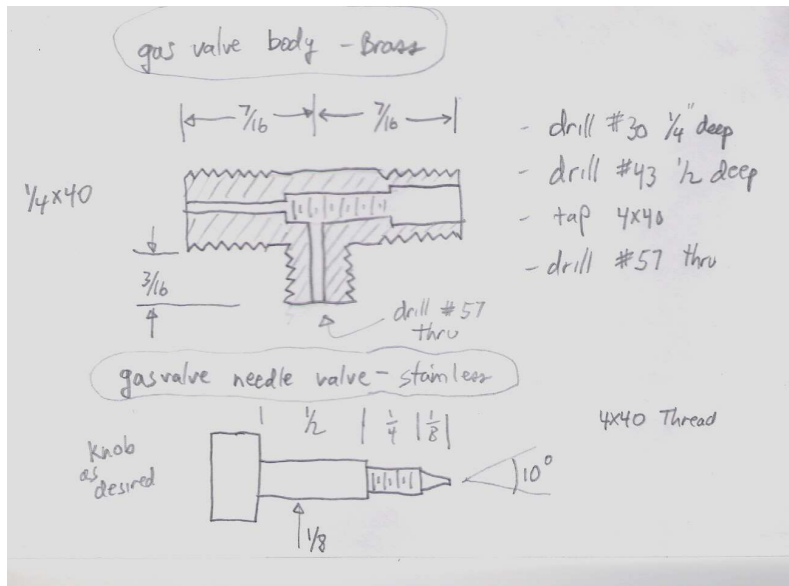 gas valve body - Brass
7/16 7/16
- drill #30 1/4" deep
- drill #43 1/2 deep
- tap 4x40
- drill #57 thru
1/4x40
3/16
drill #57
thru
gas valve needle valve - stainless
1/2 1/4 1/8
4x40 Thread
Knob
as
desired
10°
1/8